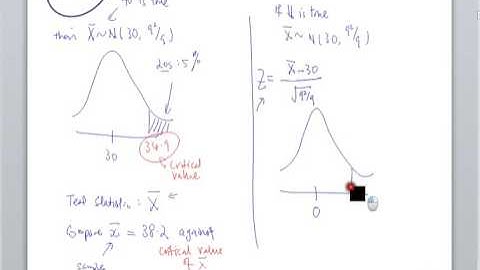 H is true
then X̄~N(30, 9²/9)
LOS: 5%
30
34.9
critical
value
Test statistic: X̄
Compare x̄ = 38.2 against
critical value
of X̄
sample
If H is true
X̄~N(30, 9²/9)
Z = X̄-30
√9²/9
0